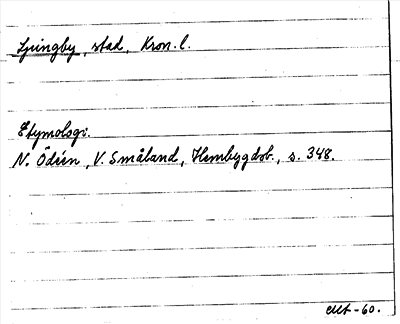 Ljungby, stad, Kron. l.
Etymologi.
N. Ödéen, V. Småland, Hembygdsb., s. 348.
-60.